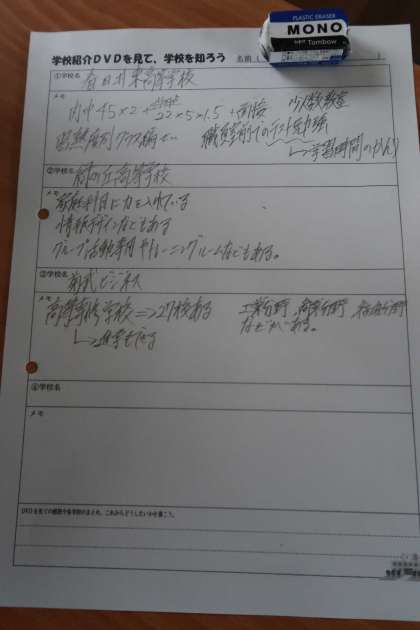 PLASTIC ERASER
MONO
Tombow
学校紹介DVDを見て、学校を知ろう 名前(
①学校名 春日井東高等学校
メモ
内申45×2+ 22×5×1.5+面接 少人数教室
習熟度別クラス編セい 職員室前でのテスト勉強
→学習時間の
②学校名 緑丘高等学校
メモ
家庭科目に力を入れている
情報デザインなどもある
グループ活動専用やトレーニングルームなどもある。
③学校名 ビジネス
メモ
高等専修学校⇒27校ある 工業分野、商業分野、
などがある。
→進学もできる
④学校名
メモ
DVDを見ての感想や各学校のまとめ、これからどうしたいかを書こう。